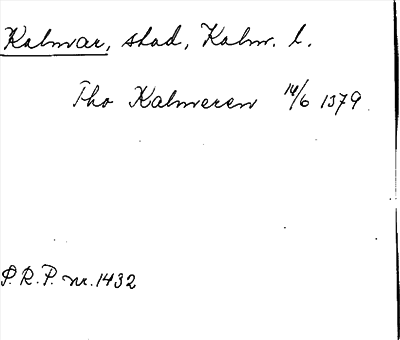 Kalmar, stad, Kalm. l.
Tho Kalmeren 14/6 1379.
P.R.P. nr. 1432